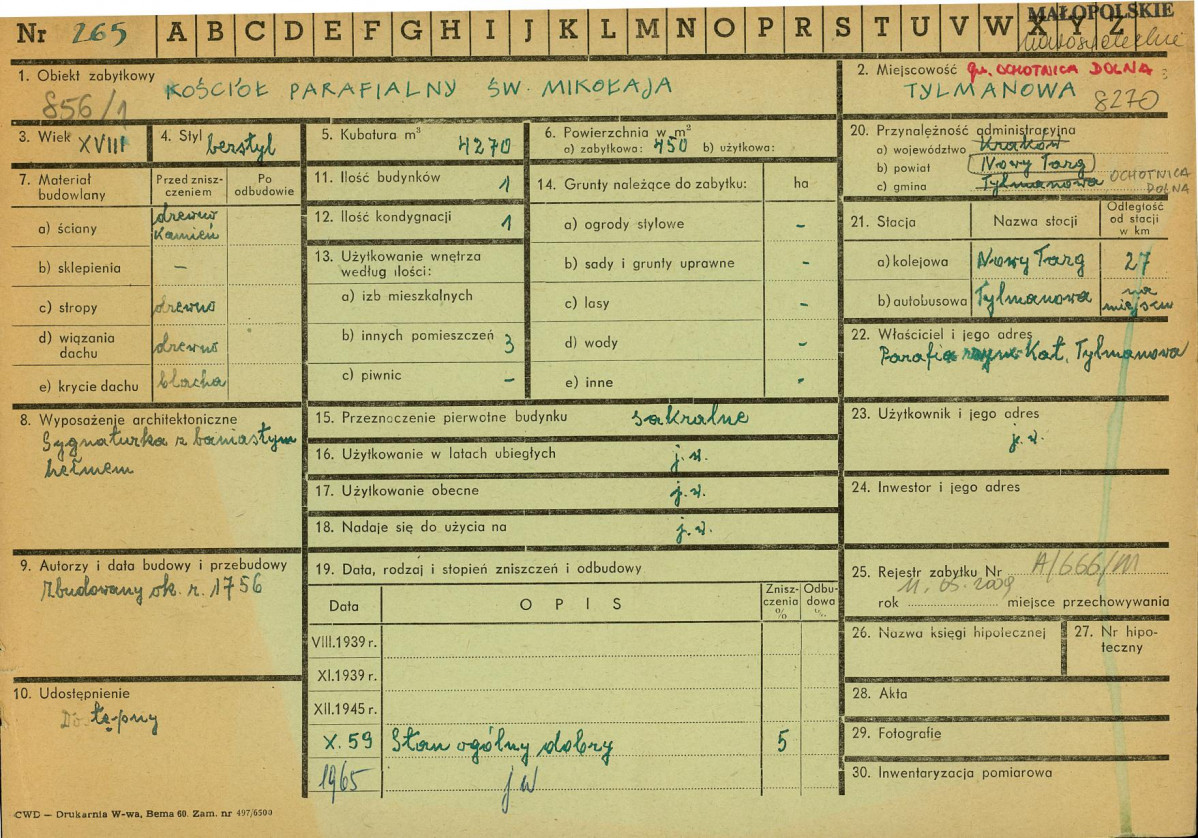 Nr 265 A B C D E F G H I J K L M N O P R S T U V W X Y Z
MAŁOPOLSKIE
nowosądeckie
1. Obiekt zabytkowy
KOŚCIÓŁ PARAFIALNY ŚW. MIKOŁAJA
856/1
2. Miejscowość gm. OCHOTNICA DOLNA
TYLMANOWA
8270
3. Wiek XVIII
4. Styl bezstyl
5. Kubatura m³
4270
6. Powierzchnia w m²
a) zabytkowa: 450 b) użytkowa:
20. Przynależność administracyjna
a) województwo Kraków
b) powiat Nowy Targ
c) gmina Tylmanowa OCHOTNICA DOLNA
7. Materiał budowlany
Przed zniszczeniem
Po odbudowie
a) ściany drewno kamień
b) sklepienia –
c) stropy drewno
d) wiązania dachu drewno
e) krycie dachu blacha
11. Ilość budynków 1
12. Ilość kondygnacji 1
13. Użytkowanie wnętrza według ilości:
a) izb mieszkalnych
b) innych pomieszczeń 3
c) piwnic –
14. Grunty należące do zabytku: ha
a) ogrody stylowe -
b) sady i grunty uprawne -
c) lasy -
d) wody -
e) inne -
21. Stacja
Nazwa stacji
Odległość od stacji w km
a) kolejowa Nowy Targ 27
b) autobusowa Tylmanowa na miejscu
22. Właściciel i jego adres
Parafia rzym. Kat. Tylmanowa
8. Wyposażenie architektoniczne
Sygnaturka z baniastym
hełmem
15. Przeznaczenie pierwotne budynku sakralne
16. Użytkowanie w latach ubiegłych j.w.
17. Użytkowanie obecne j.w.
18. Nadaje się do użycia na j.w.
23. Użytkownik i jego adres
j.w.
24. Inwestor i jego adres
9. Autorzy i data budowy i przebudowy
Zbudowany ok. r. 1756
19. Data, rodzaj i stopień zniszczeń i odbudowy
Data
OPIS
Zniszczenia %
Odbudowa %
VIII.1939 r.
XI.1939 r.
XII.1945 r.
X.59 Stan ogólny dobry 5
1965 jw
25. Rejestr zabytku Nr A/666/M
11.05.2009
rok miejsce przechowywania
26. Nazwa księgi hipotecznej
27. Nr hipoteczny
28. Akta
29. Fotografie
30. Inwentaryzacja pomiarowa
10. Udostępnienie
Dostępny
CWD — Drukarnia W-wa, Bema 60. Zam. nr 497/6500